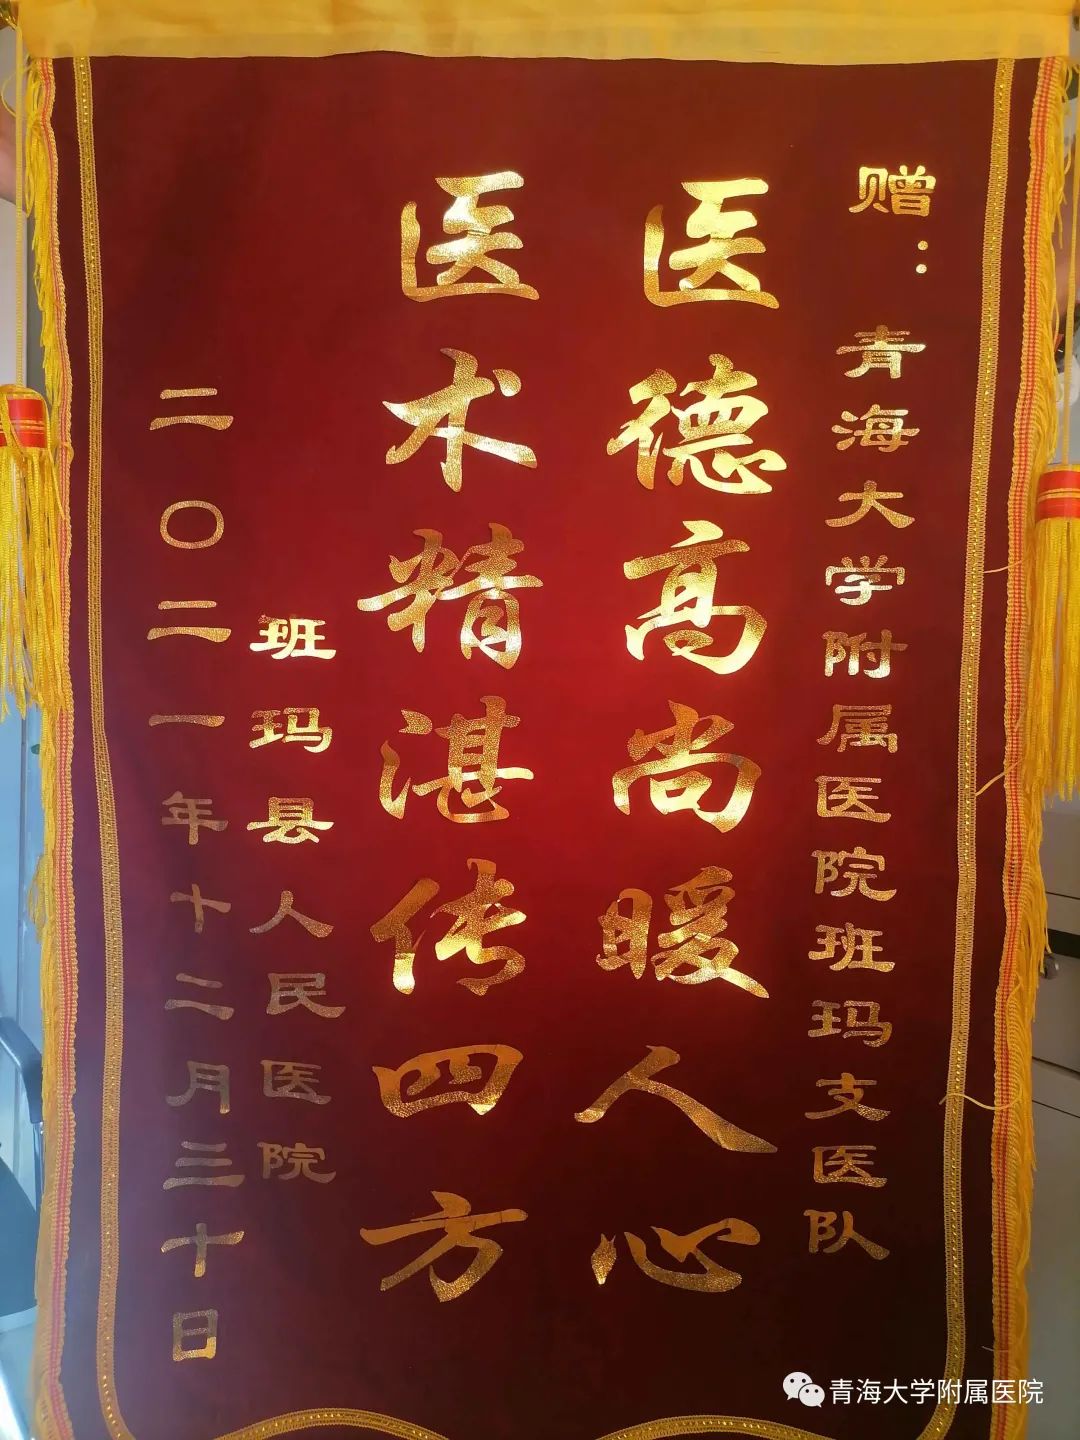 赠：青海大学附属医院班玛支医队
医德高尚暖人心
医术精湛传四方
班玛县人民医院
二〇二一年十二月三十日
青海大学附属医院